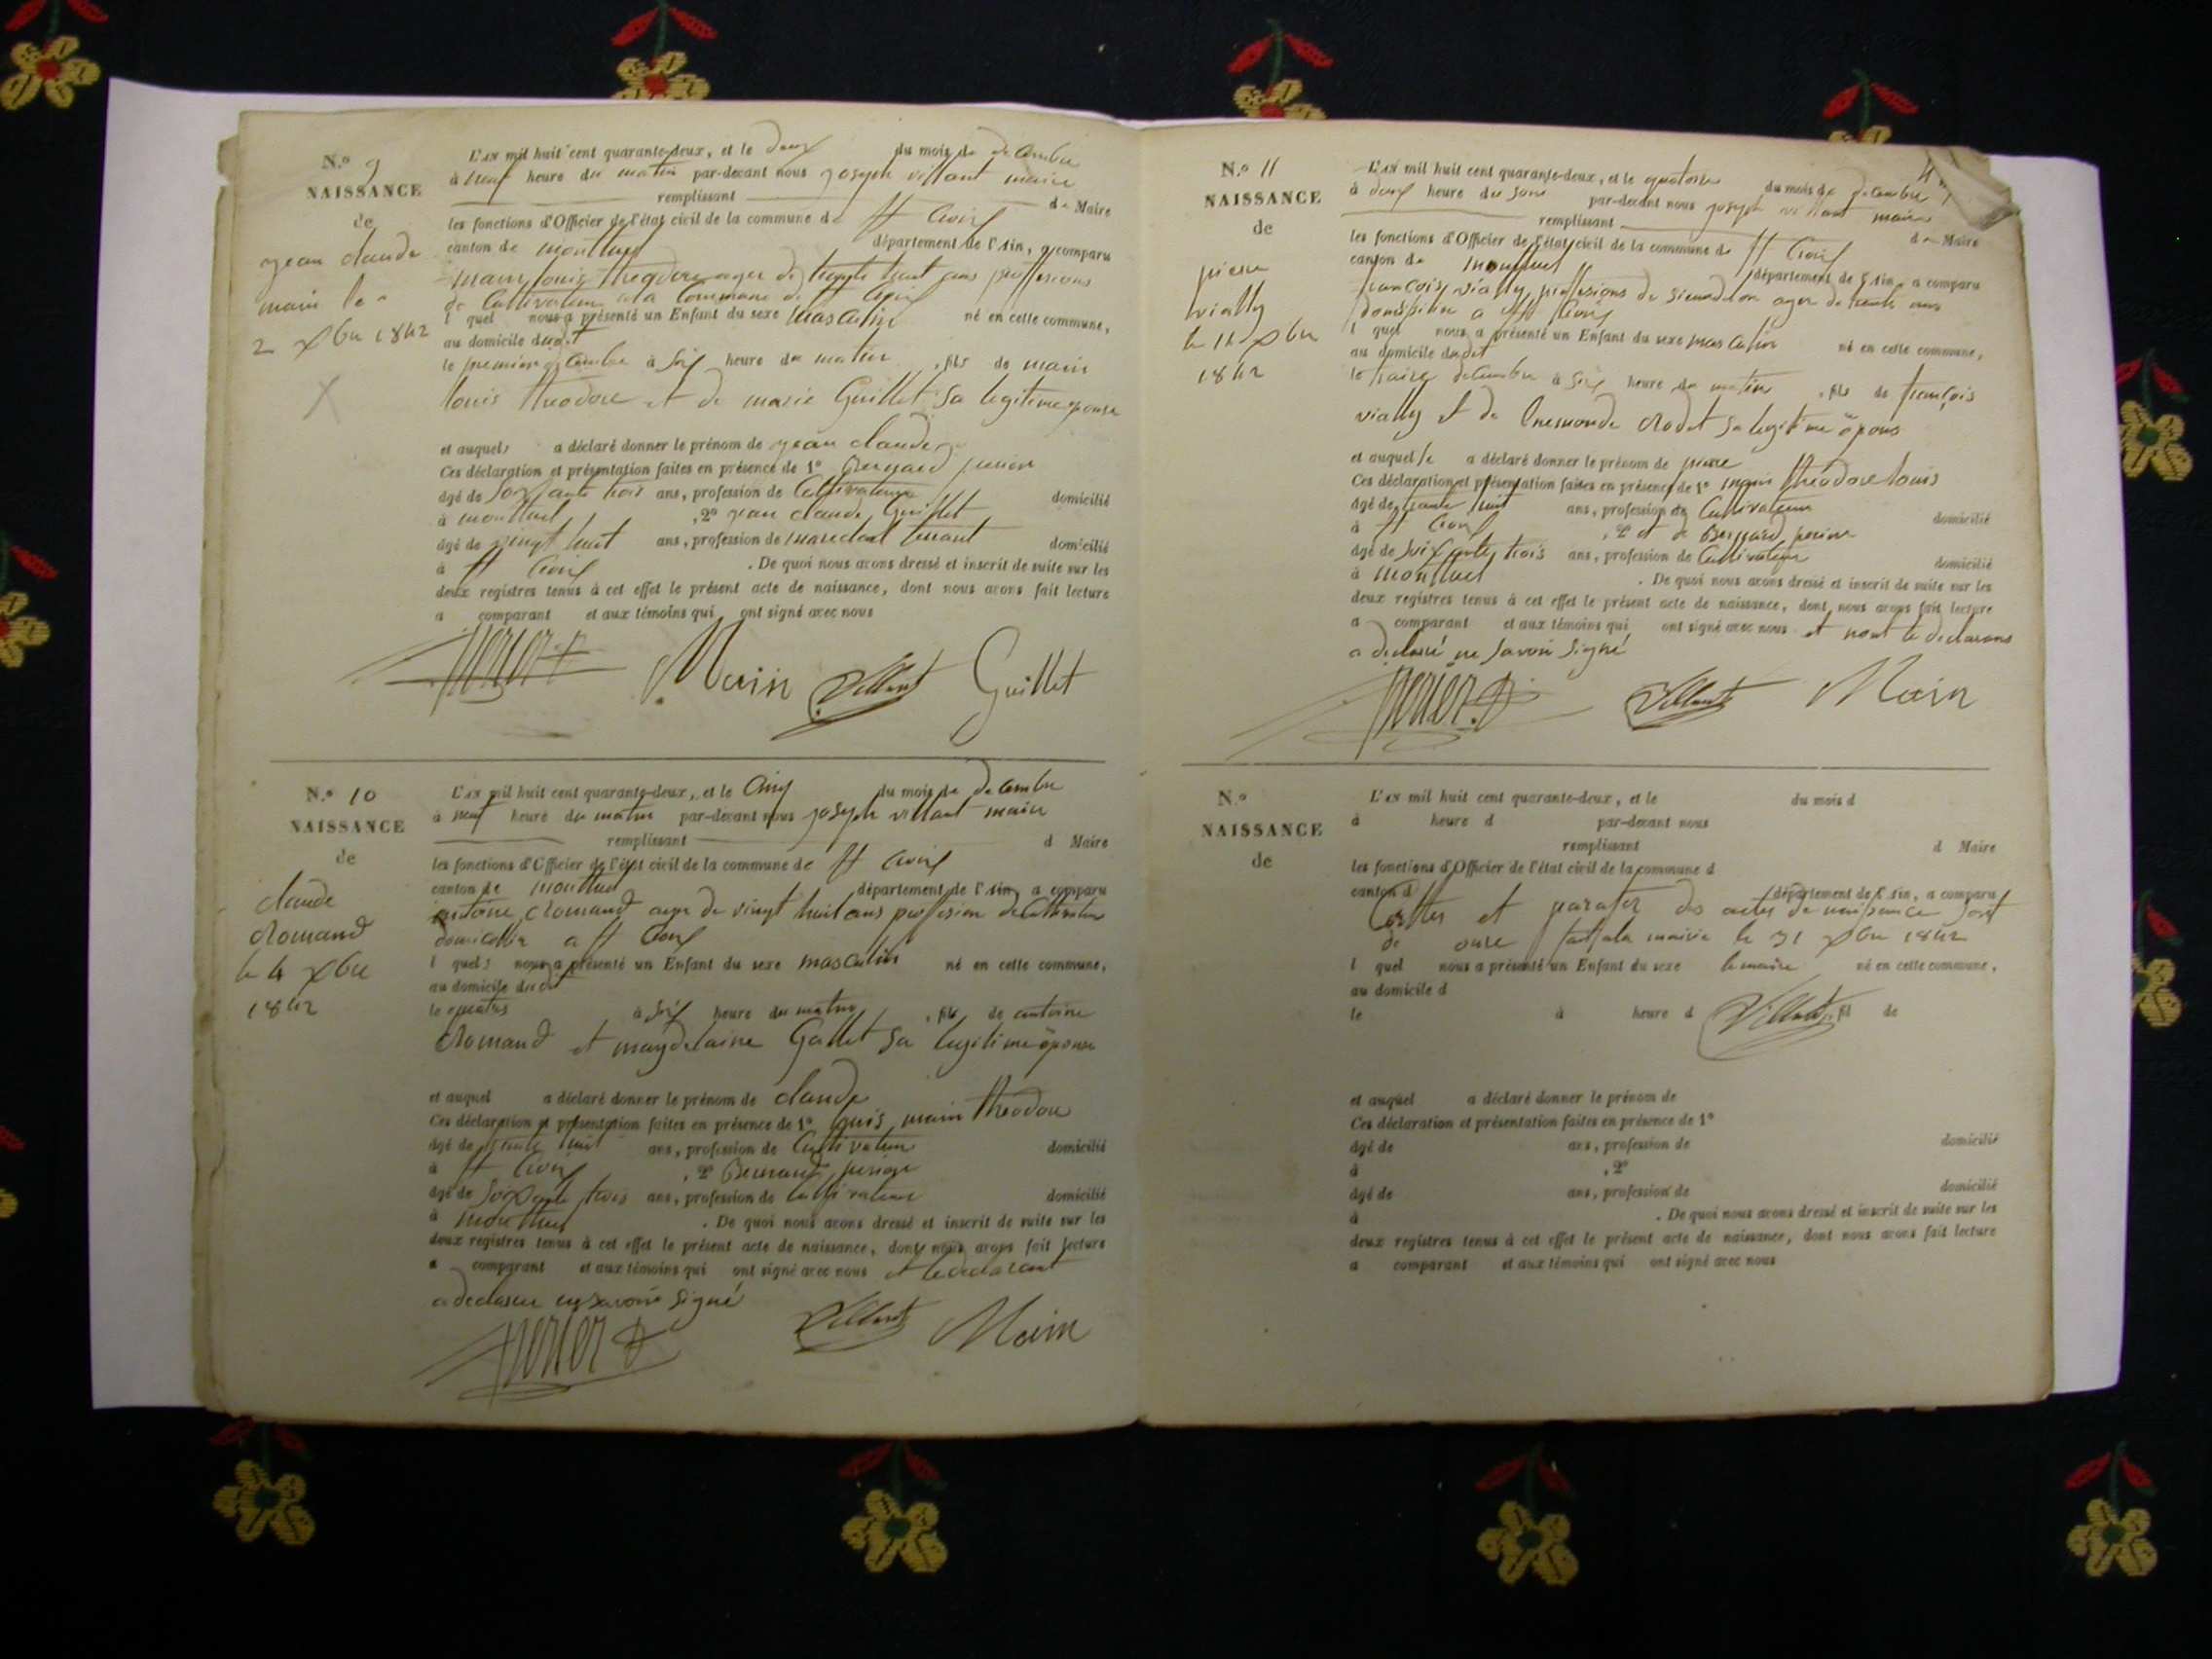 N.º 9
NAISSANCE
de
jean claude
main le
2 Xbre 1842
L'AN mil huit cent quarante-deux, et le deux du mois de décembre
à neuf heure du matin par-devant nous joseph villant maire
remplissant de Maire
les fonctions d'Officier de l'état civil de la commune de St Croix
canton de montluel département de l'Ain, a comparu
main louis theodore agee de trente huit ans proffesions
de Cultivateur a la Commune de St Croix
l quel nous a présenté un Enfant du sexe masculin né en cette commune,
au domicile dudit
le premier décembre à six heure du matin, fils de main
louis theodore et de marie Guillet sa legitime eponse
et auquel a déclaré donner le prénom de jean claude
Ces déclaration et présentation faites en présence de 1º Bernard
âgé de soixante trois ans, profession de Cultivateur domicilié
à montluel, 2º jean claude Guillet
âgé de vingt huit ans, profession de domicilié
à St Croix. De quoi nous avons dressé et inscrit de suite sur les
deux registres tenus à cet effet le présent acte de naissance, dont nous avons fait lecture
a comparant et aux témoins qui ont signé avec nous
Main Villant Guillet
N.º 10
NAISSANCE
de
claude
Romand
le 4 Xbre
1842
L'AN mil huit cent quarante-deux, et le Cinq du mois de décembre
à neuf heure du matin par-devant nous joseph villant maire
remplissant d Maire
les fonctions d'Officier de l'état civil de la commune de St Croix
canton de montluel département de l'Ain, a comparu
antoine Romand agee de vingt huit ans proffesion de Cultivateur
a St Croix
l quel nous a présenté un Enfant du sexe masculin né en cette commune,
au domicile dudit
le quatre à six heure du matin, fils de antoine
Romand et magdelaine Gallet sa legitime eponse
et auquel a déclaré donner le prénom de claude
Ces déclaration et présentation faites en présence de 1º louis main theodore
âgé de trente huit ans, profession de Cultivateur domicilié
à St Croix, 2º Bernard
âgé de soixante trois ans, profession de Cultivateur domicilié
à montluel. De quoi nous avons dressé et inscrit de suite sur les
deux registres tenus à cet effet le présent acte de naissance, dont nous avons fait lecture
a comparant et aux témoins qui ont signé avec nous et le declarant
signé
Villant Main
N.º 11
NAISSANCE
de
pierre
vially
le 14 Xbre
1842
L'AN mil huit cent quarante-deux, et le quatorze du mois de décembre
à deux heure du soir par-devant nous joseph villant maire
remplissant de Maire
les fonctions d'Officier de l'état civil de la commune de St Croix
canton de montluel département de l'Ain, a comparu
francois vially proffesions de agee de trente ans
a St Croix
l quel nous a présenté un Enfant du sexe masculin né en cette commune,
au domicile dudit
le traize décembre à six heure du matin, fils de françois
vially et de Rodet sa legitime epons
et auquel le a déclaré donner le prénom de pierre
Ces déclaration et présentation faites en présence de 1º main theodore louis
âgé de trente huit ans, profession de Cultivateur domicilié
à St Croix, 2º et de Bernard
âgé de soixante trois ans, profession de Cultivateur domicilié
à montluel. De quoi nous avons dressé et inscrit de suite sur les
deux registres tenus à cet effet le présent acte de naissance, dont nous avons fait lecture
a comparant et aux témoins qui ont signé avec nous et nont le declarans
a declaré ne savoir signé
Villant Main
N.º
NAISSANCE
de
L'AN mil huit cent quarante-deux, et le du mois d
à heure d par-devant nous
remplissant d Maire
les fonctions d'Officier de l'état civil de la commune d
canton d département de l'Ain, a comparu
et parafer des actes de naissance sont
de onze fait a la mairie le 31 Xbre 1842
l quel nous a présenté un Enfant du sexe le maire né en cette commune,
au domicile d
le à heure d Villant, fil de
et auquel a déclaré donner le prénom de
Ces déclaration et présentation faites en présence de 1º
âgé de ans, profession de domicilié
à , 2º
âgé de ans, profession de domicilié
à . De quoi nous avons dressé et inscrit de suite sur les
deux registres tenus à cet effet le présent acte de naissance, dont nous avons fait lecture
a comparant et aux témoins qui ont signé avec nous